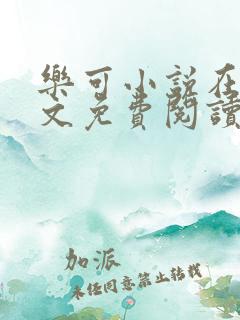 樂可小說在
文免費閱讀
加派
未经同意禁止转载